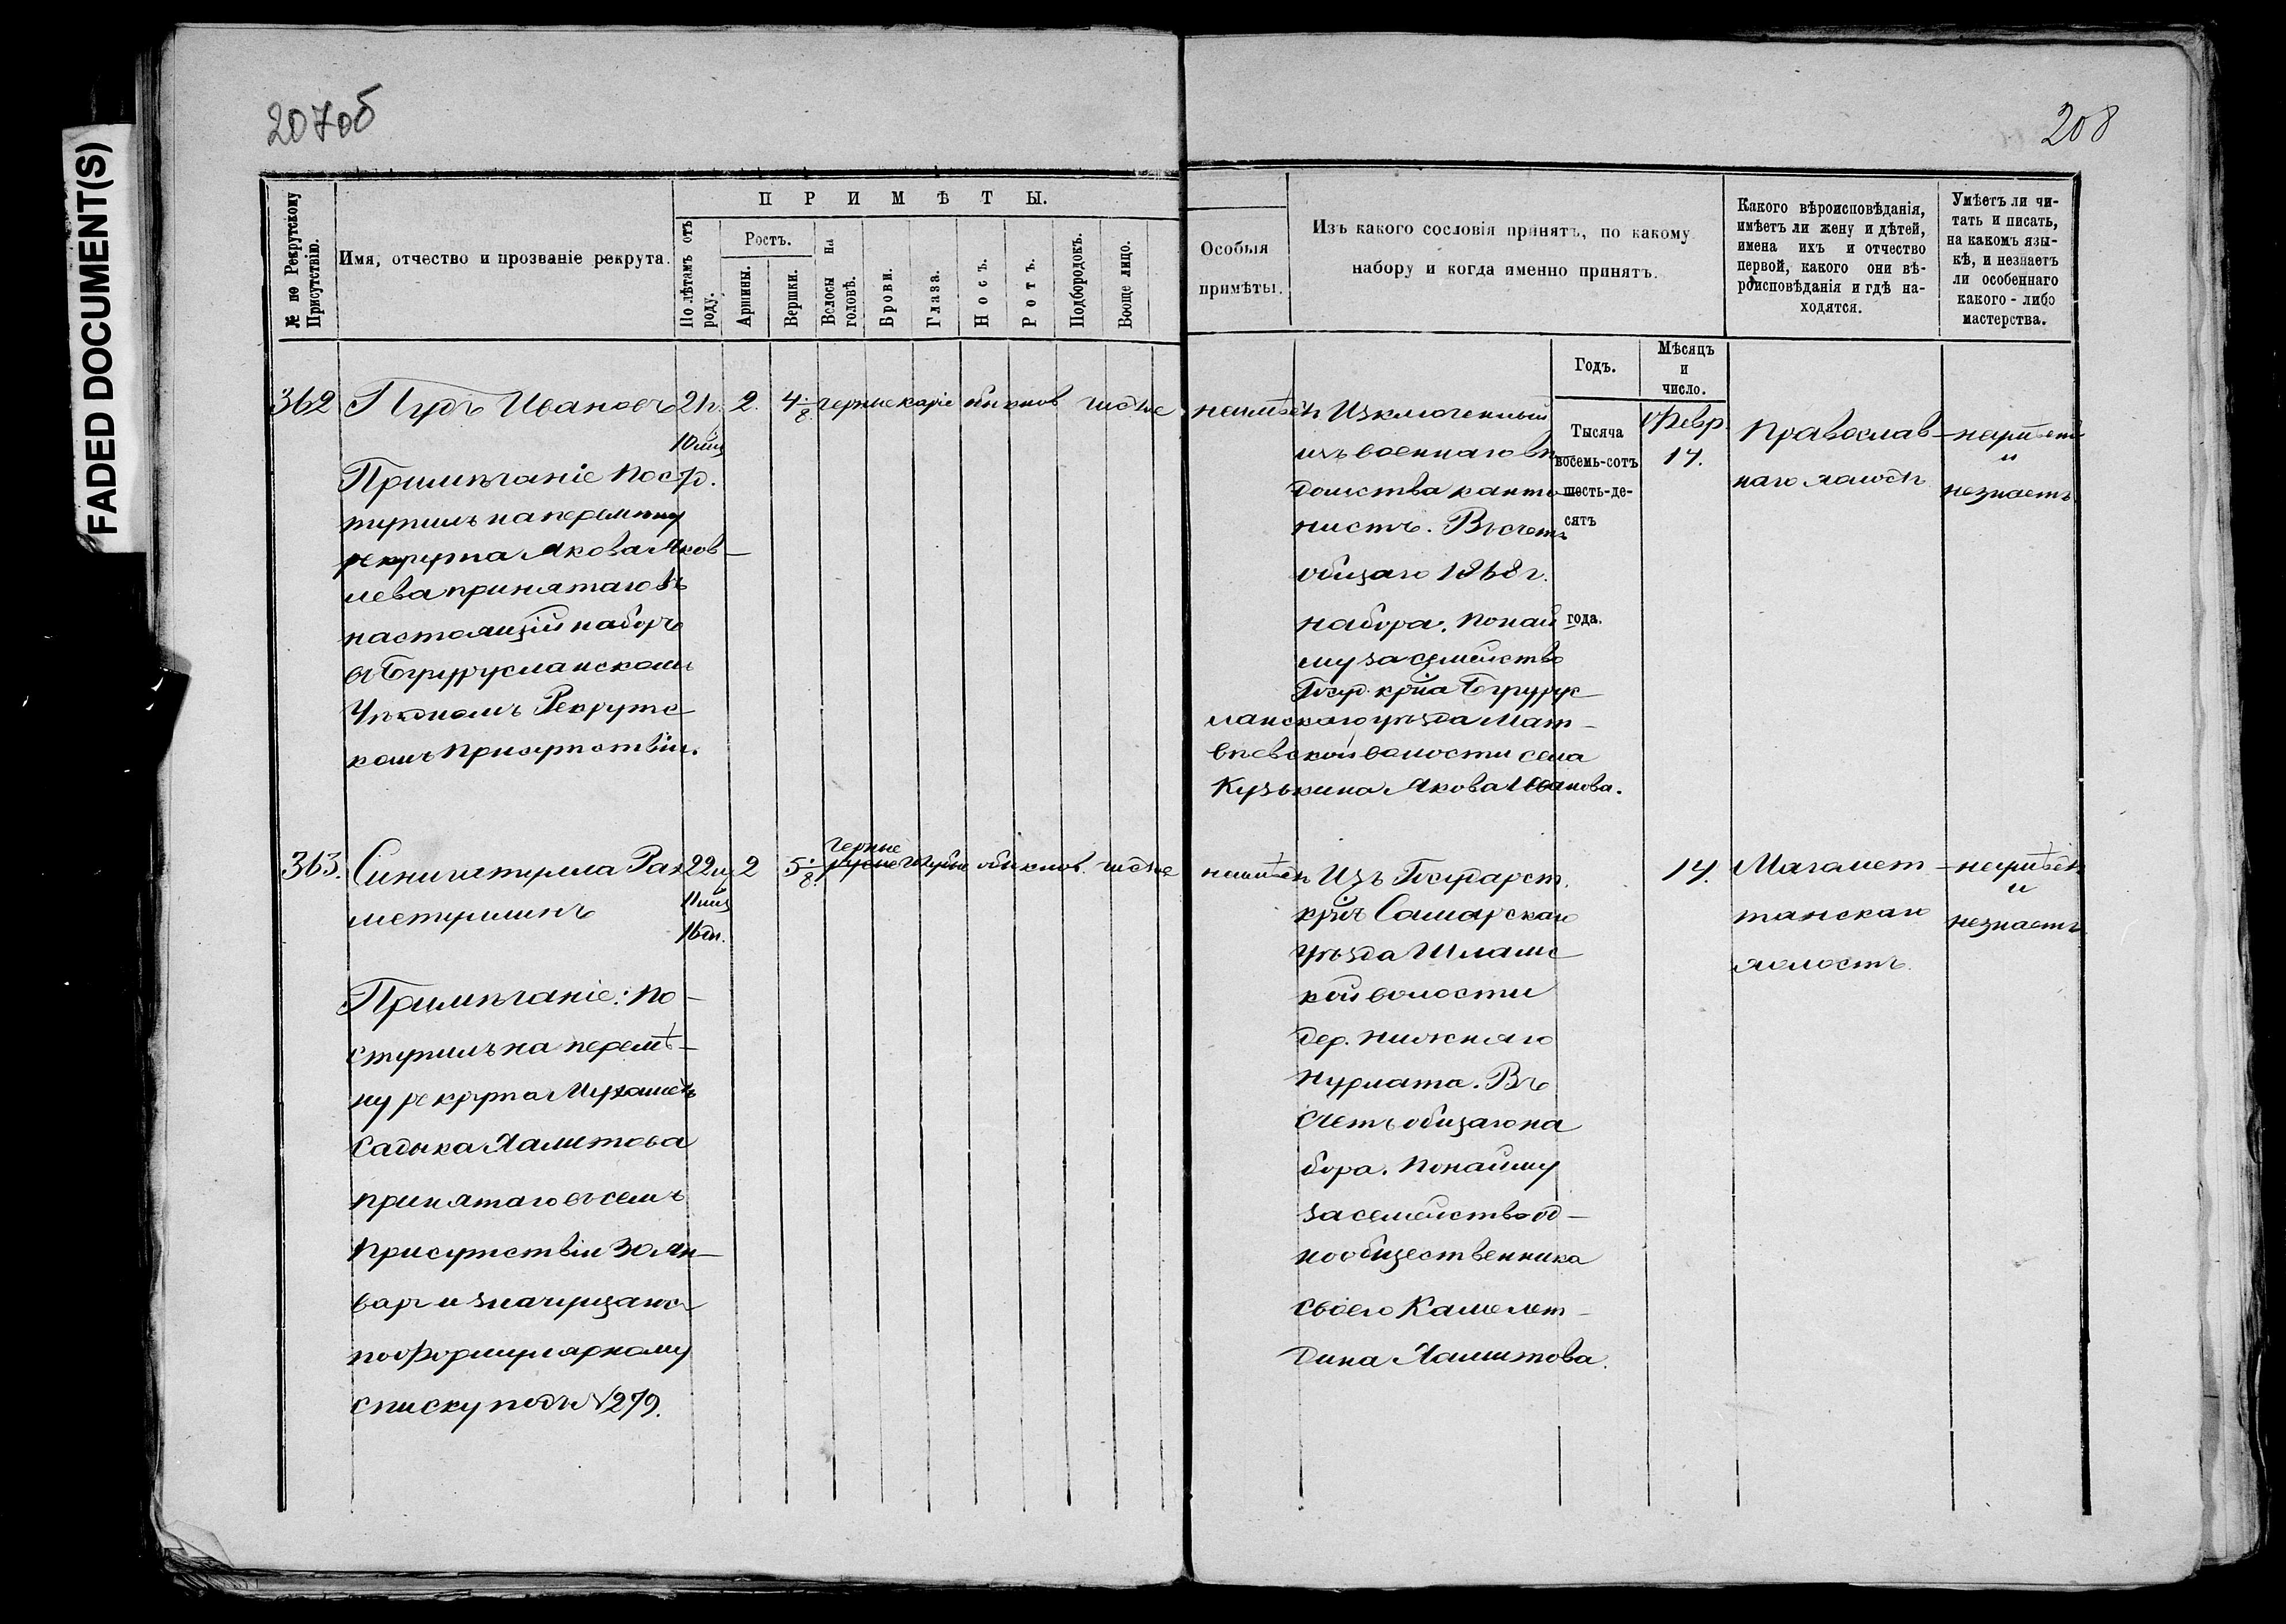 FADED DOCUMENT(S)
207об
208
№ по Рекрутскому Присутствію.
Имя, отчество и прозваніе рекрута.
ПРИМѢТЫ.
По лѣтамъ отъ роду.
Ростъ.
Аршины.
Вершки.
Волосы на головѣ.
Брови.
Глаза.
Носъ.
Ротъ.
Подбородокъ.
Вооще лицо.
Особыя
примѣты.
Изъ какого сословія принятъ, по какому
набору и когда именно принятъ.
Годъ.
Мѣсяцъ
и
число.
Какого вѣроисповѣданія,
имѣетъ ли жену и дѣтей,
имена ихъ и отчество
первой, какого они вѣ-
роисповѣданія и гдѣ на-
ходятся.
Умѣетъ ли чи-
тать и писать,
на какомъ язы-
кѣ, и незнаетъ
ли особеннаго
какого-либо
мастерства.
362 Пудъ Ивановъ 21г. 2. 4 1/8 черные каріе обыкнов чистое
10 мѣц
Примѣчаніе Пос
тупилъ на перемѣну
рекрута Якова Яков-
лева принятаго въ
настоящій наборъ
въ Бугурусланскомъ
Уѣздномъ Рекрутс
комъ Присутствіи.
неимѣетъ
Изключенный
изъ военнаго вѣ
домства канто
нистъ. Въ счетъ
общаго 1868 г.
набора. По най
му за семейство
Госуд. кр-на Бугурус
ланскаго уѣзда Мат-
вѣевской волости села
Кузькина Якова Иванова.
Тысяча
восемь-сотъ
шесть-де-
сятъ
года.
Февр.
14.
Православ-
наго холостъ
неумѣетъ
и
незнаетъ
363. Рах 22л 2 5 1/8 черные
русые обыкнов. чистое
метуллинъ
11 мѣц
16 дн.
Примѣчаніе: По-
ступилъ на перемѣ-
ну рекрута Мухаметъ
Садыка Халитова
принятаго въ семъ
Присутствіи 30 Ян-
варя и значущагося
по формулярному
списку подъ № 279.
неимѣетъ
Изъ Государст.
кр-нъ Самарскаго
уѣзда Шламс
кой волости
дер. Нижняго
Нурлата. Въ
счетъ общаго на
бора. По найму
за семейство од-
нообщественника
своего Камалет-
дина Халитова.
14.
Магомет-
танскаго
холостъ.
неумѣетъ
и
незнаетъ